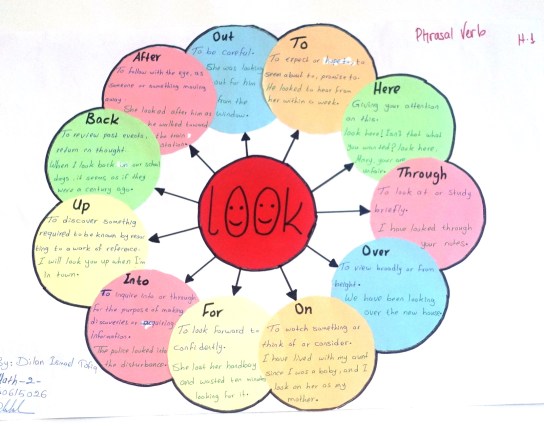 Phrasal Verb
H.1
Out
To be careful.
She was looking
out for him
from the
window.
To
To expect or hope to, to
seem about to, promise to.
He looked to hear from
her within a week.
Here
Giving your attention
on this.
look here! Isn't that what
you wanted? look here,
Through
To look at or study
briefly.
I have looked through
your notes.
Over
To view broadly or from
height.
We have been looking
over the new house.
On
To watch something or
think of or consider.
I have lived with my aunt
since I was a baby, and I
look on her as my
mother.
For
To look forward to
confidently.
She lost her handbag
and waisted ten minutes
looking for it.
Into
To inquire into or through
for the purpose of making
discoveries or acquiring
information.
The police looked into
the disturbance.
Up
To discover something
required to be known by resor
ting to a work of reference.
I will look you up when I'm
in town.
Back
To review past events,
return in thought.
When I look back on our school
days, it seems as if they
were a century ago.
After
To follow with the eye, as
someone or something moving
away.
She looked after him as
he walked toward
the train
station.
lOOK
By: Dilan Ismail
Math-2-